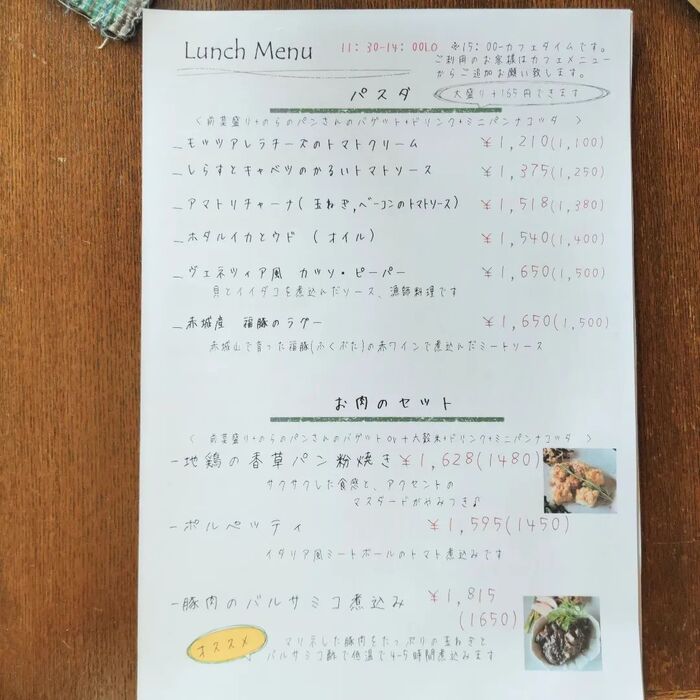 Lunch Menu 11:30-14:00LO ※15:00-カフェタイムです。
ご利用のお客様はカフェメニュー
からご追加お願い致します。
パスタ 大盛り+165円できます
〈 前菜盛り+のらのパンさんのバゲット+ドリンク+ミニパンナコッタ 〉
モッツァレラチーズのトマトクリーム ¥1,210(1,100)
しらすとキャベツのかるいトマトソース ¥1,375(1,250)
アマトリチャーナ(玉ねぎ,ベーコンのトマトソース) ¥1,518(1,380)
ホタルイカとウド (オイル) ¥1,540(1,400)
ヴェネツィア風 カッソ・ピーパー ¥1,650(1,500)
貝とイイダコを煮込んだソース、漁師料理です
赤城産 福豚のラグー ¥1,650(1,500)
赤城山で育った福豚(ふくぶた)の赤ワインで煮込んだミートソース
お肉のセット
〈 前菜盛り+のらのパンさんのバゲットor十六穀米+ドリンク+ミニパンナコッタ 〉
-地鶏の香草パン粉焼き ¥1,628(1480)
サクサクした食感と、アクセントの
マスタードがやみつき♪
-ポルペッティ ¥1,595(1450)
イタリア風ミートボールのトマト煮込みです
-豚肉のバルサミコ煮込み ¥1,815
(1650)
オススメ マリネした豚肉をたっぷりの玉ねぎと
バルサミコ酢で低温で4-5時間煮込みます